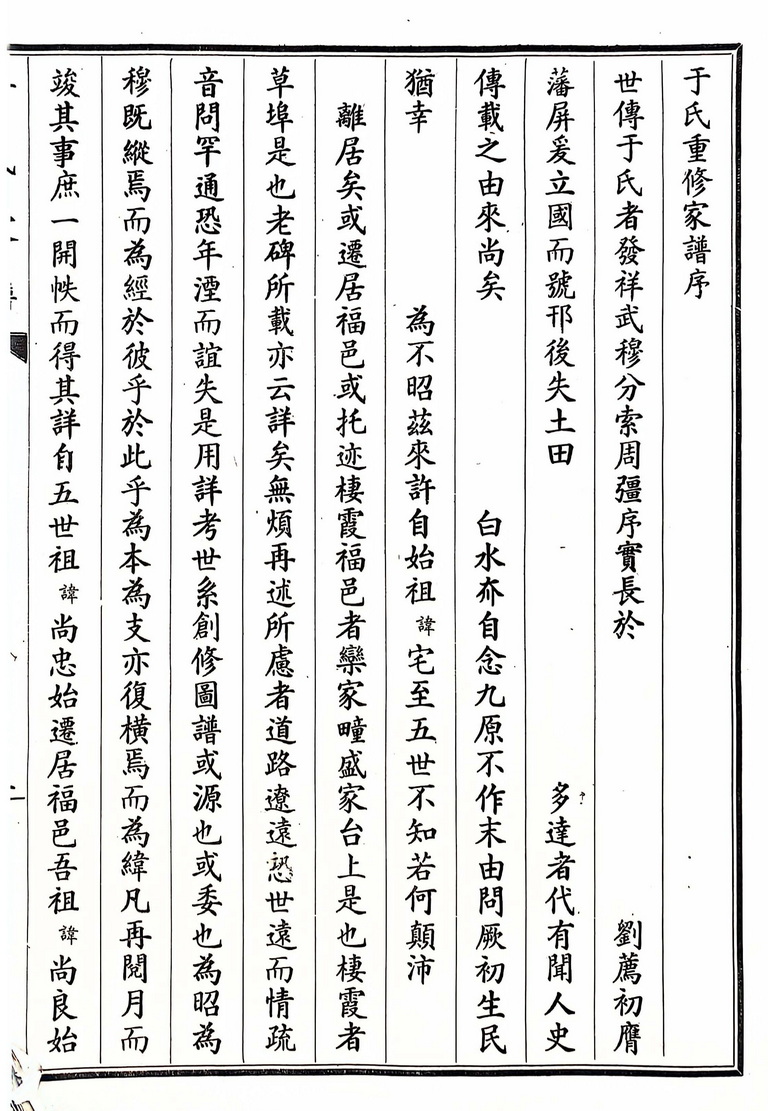 于氏重修家譜序
世傳于氏者發祥武穆分索周彊序實長於　劉薦初膺
藩屏爰立國而號邘後失土田　多達者代有聞人史
傳載之由來尚矣　白水夼自念九原不作末由問厥初生民
猶幸　為不昭茲來許自始祖諱宅至五世不知若何顛沛
離居矣或遷居福邑或托迹棲霞福邑者欒家疃盛家台上是也棲霞者
草埠是也老碑所載亦云詳矣無煩再述所慮者道路遼遠恐世遠而情疏
音問罕通恐年湮而誼失是用詳考世系創修圖譜或源也或委也為昭為
穆既縱焉而為經於彼乎於此乎為本為支亦復橫焉而為緯凡再閱月而
竣其事庶一開帙而得其詳自五世祖諱尚忠始遷居福邑吾祖諱尚良始